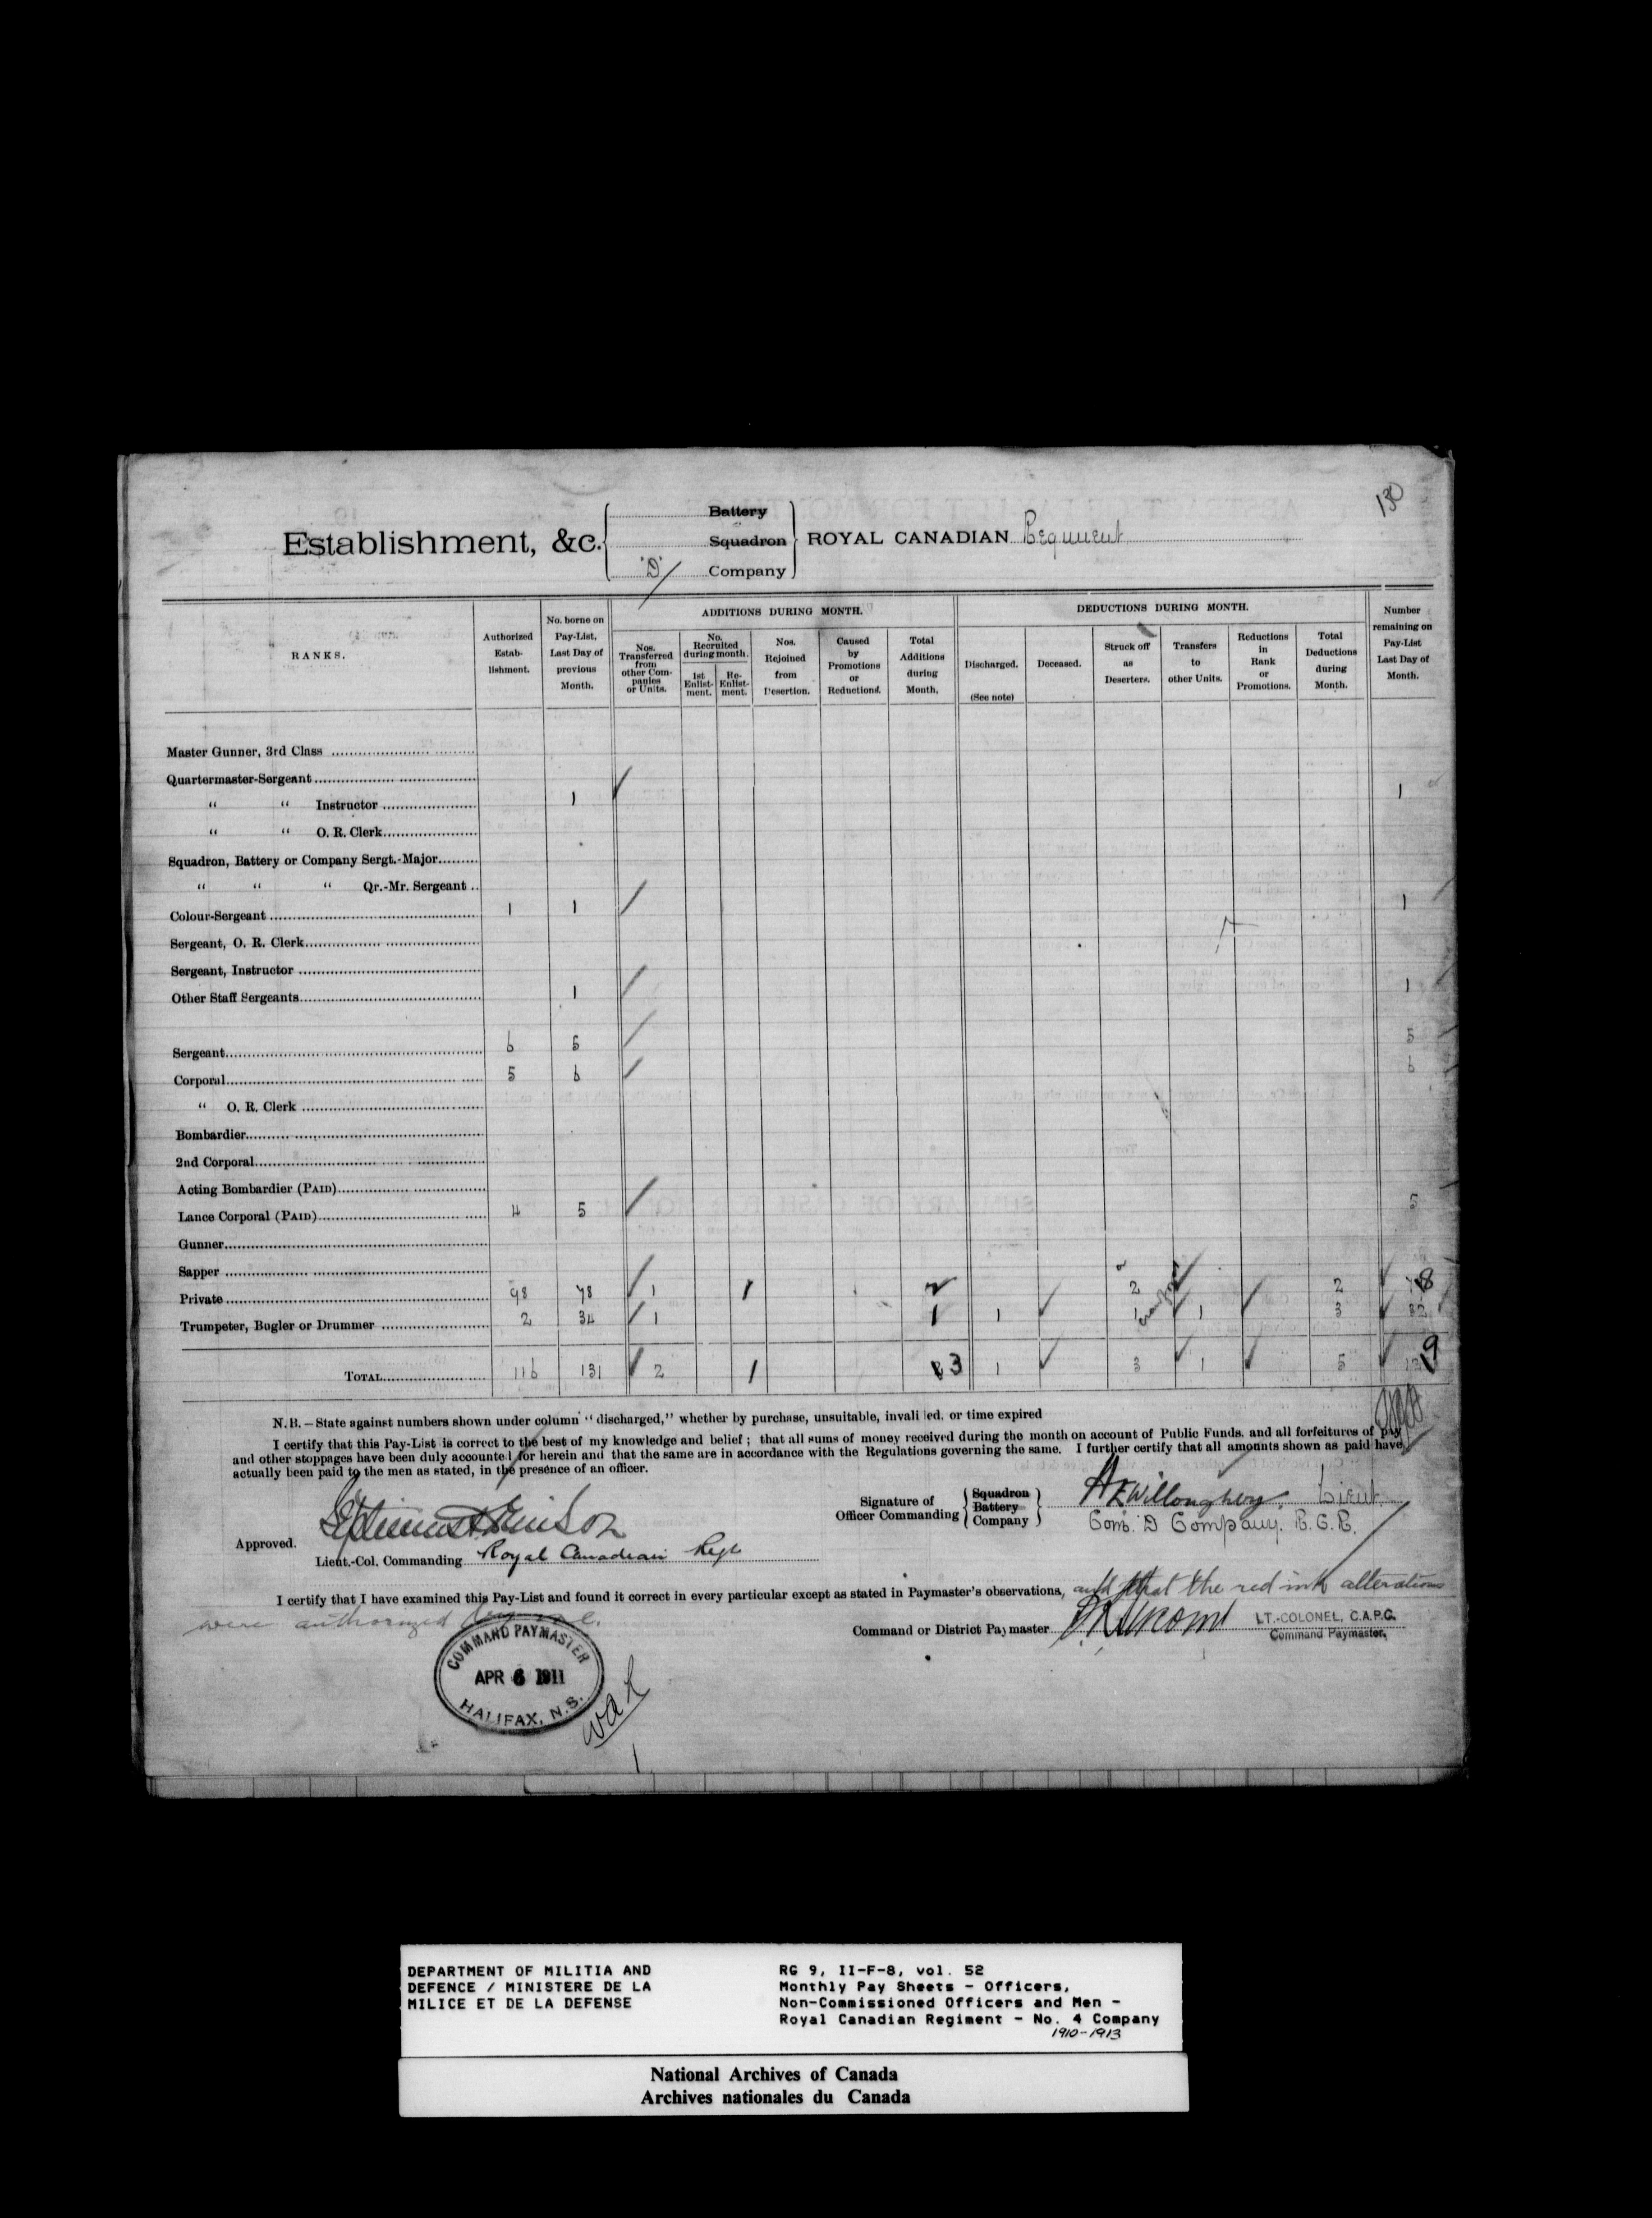 130
Establishment, &c.
Battery
Squadron
"D" Company
ROYAL CANADIAN Regiment
RANKS.
Authorized Establishment.
No. borne on Pay-List, Last Day of previous Month.
ADDITIONS DURING MONTH.
Nos. Transferred from other Companies or Units.
No. Recruited during month.
1st Enlistment.
Re-Enlistment.
Nos. Rejoined from Desertion.
Caused by Promotions or Reductions.
Total Additions during Month.
DEDUCTIONS DURING MONTH.
Discharged. (See note)
Deceased.
Struck off as Deserters.
Transfers to other Units.
Reductions in Rank or Promotions.
Total Deductions during Month.
Number remaining on Pay-List Last Day of Month.
Master Gunner, 3rd Class
Quartermaster-Sergeant
“ “ Instructor 1 1
“ “ O. R. Clerk
Squadron, Battery or Company Sergt.-Major
“ “ “ Qr.-Mr. Sergeant
Colour-Sergeant 1 1 1
Sergeant, O. R. Clerk
Sergeant, Instructor
Other Staff Sergeants 1 1
Sergeant 6 5 5
Corporal 5 6 6
“ O. R. Clerk
Bombardier
2nd Corporal
Acting Bombardier (PAID)
Lance Corporal (PAID) 4 5 5
Gunner
Sapper
Private 98 78 1 1 2 2 2 78
Trumpeter, Bugler or Drummer 2 34 1 1 1 1 1 3 32
TOTAL 116 131 2 1 3 1 3 1 5 9
N.B.—State against numbers shown under column “discharged,” whether by purchase, unsuitable, invalided. or time expired
I certify that this Pay-List is correct to the best of my knowledge and belief; that all sums of money received during the month on account of Public Funds. and all forfeitures of pay
and other stoppages have been duly accounted for herein and that the same are in accordance with the Regulations governing the same. I further certify that all amounts shown as paid have
actually been paid to the men as stated, in the presence of an officer.
Signature of Officer Commanding
Squadron
Battery
Company
Willoughby. Lieut.
Com. D Company. R.C.R.
Approved.
Lieut.-Col. Commanding Royal Canadian Regt
I certify that I have examined this Pay-List and found it correct in every particular except as stated in Paymaster's observations, and that the red ink alterations
were authorized by me.
Command or District Paymaster
LT.-COLONEL, C.A.P.C.
Command Paymaster.
COMMAND PAYMASTER
APR 6 1911
HALIFAX, N.S.
DEPARTMENT OF MILITIA AND
DEFENCE / MINISTERE DE LA
MILICE ET DE LA DEFENSE
RG 9, II-F-8, vol. 52
Monthly Pay Sheets - Officers,
Non-Commissioned Officers and Men -
Royal Canadian Regiment - No. 4 Company
1910-1913
National Archives of Canada
Archives nationales du Canada